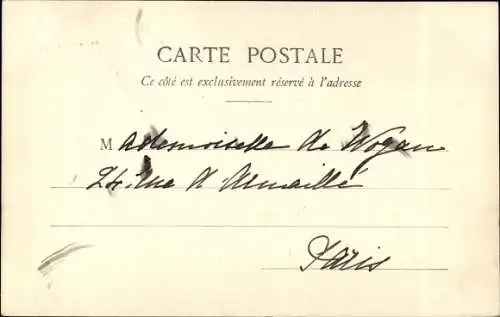 CARTE POSTALE
Ce côté est exclusivement réservé à l'adresse
Mademoiselle de Wogan
24 rue d'Armaillé
Paris